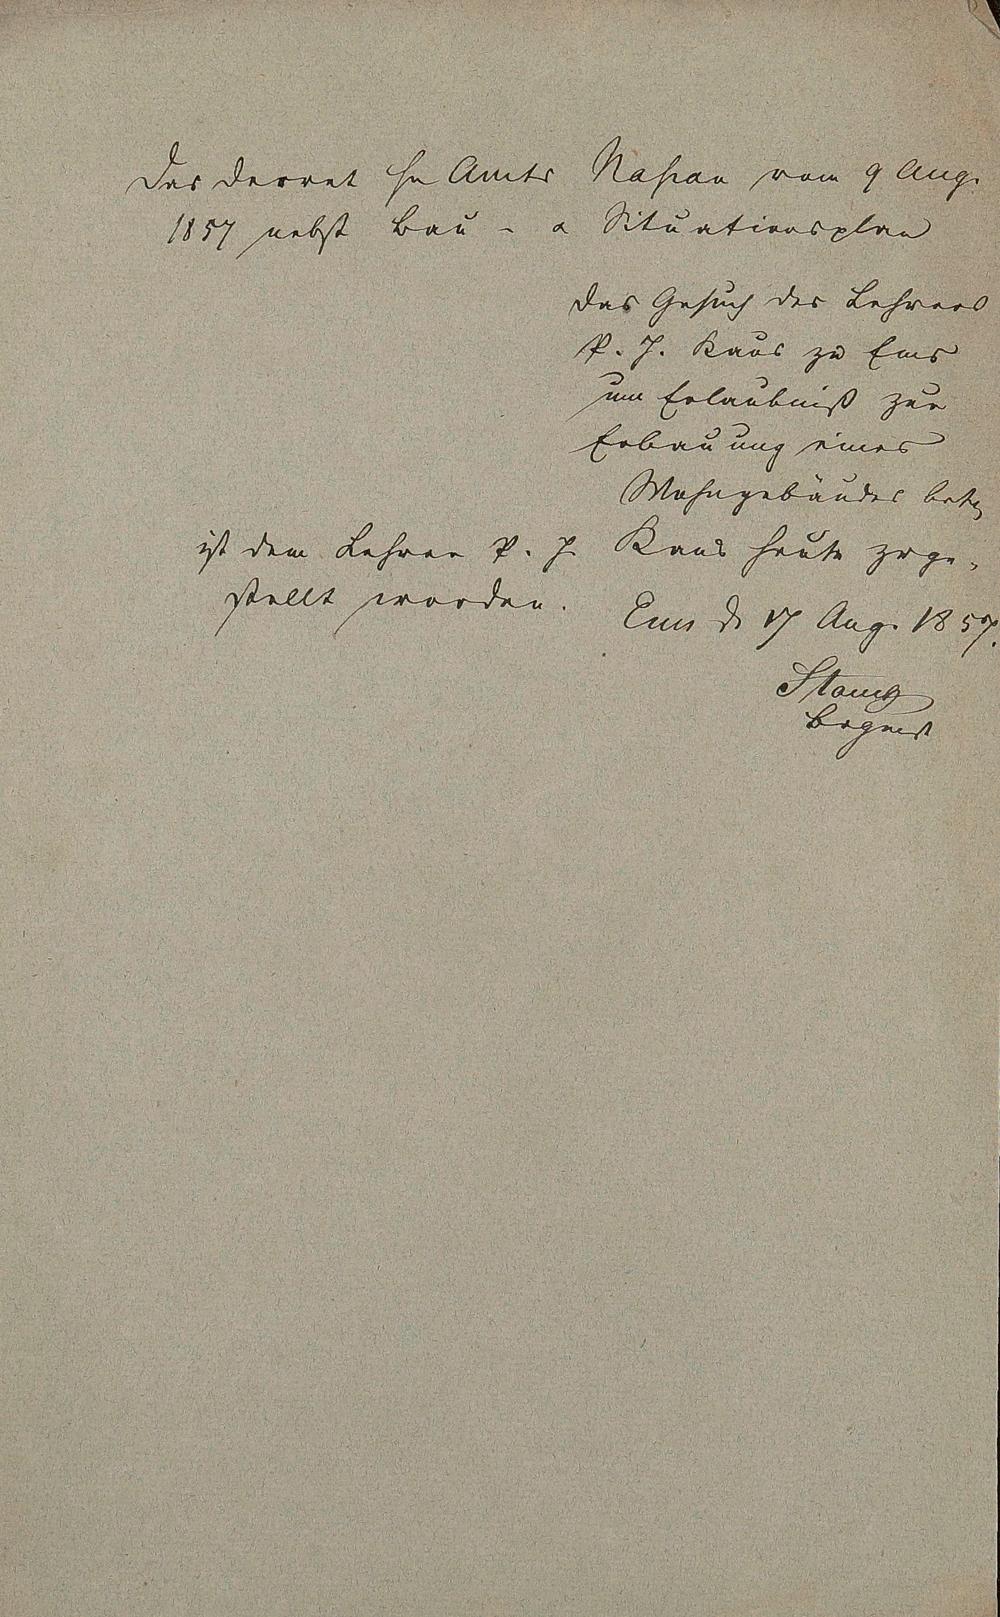 Das Decret Hz. Amts Nassau vom 9 Aug.
1857 nebst Bau- u Situationsplan
das Gesuch des Lehrers
P. J. Kaus zu Ems
um Erlaubniß zur
Erbauung eines
Wohngebäudes betr
ist dem Lehrer P. J. Kaus heute zuge-
stellt worden.
Ems d 17 Aug. 1857.
Brgmst